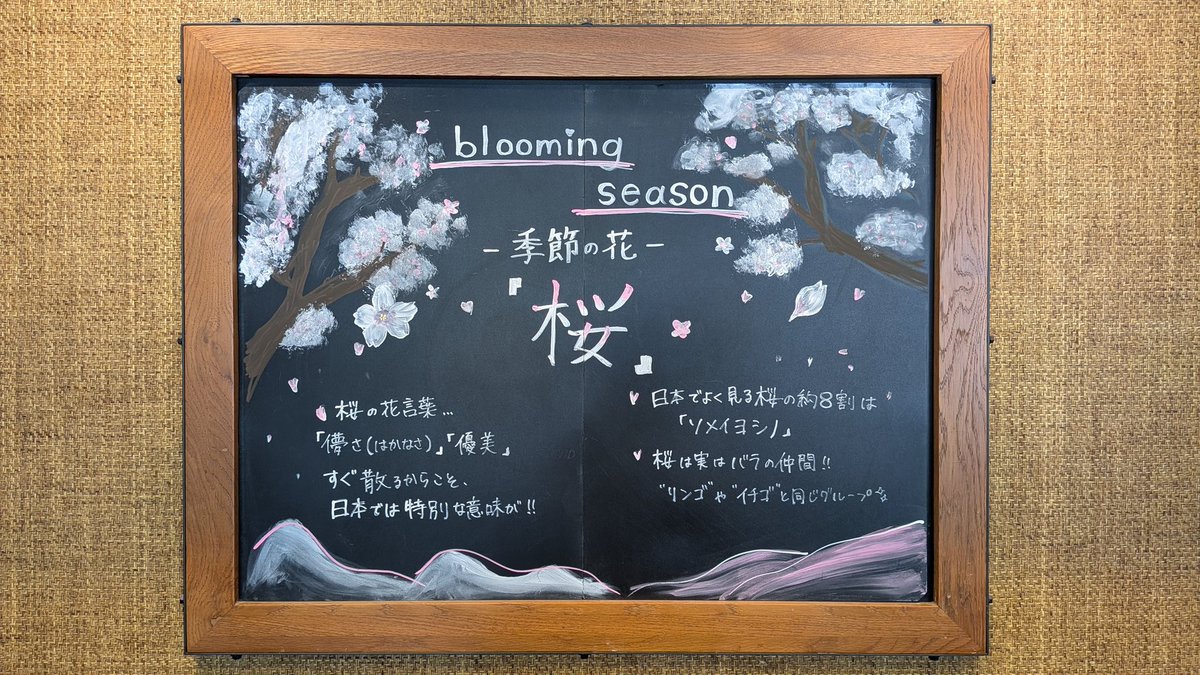 blooming
season
- 季節の花 -
『桜』
桜の花言葉…
「儚さ(はかなさ)」「優美」
すぐ散るからこそ、
日本では特別な意味が!!
日本でよく見る桜の約8割は
「ソメイヨシノ」
桜は実はバラの仲間!!
"リンゴ"や"イチゴ"と同じグループ☆